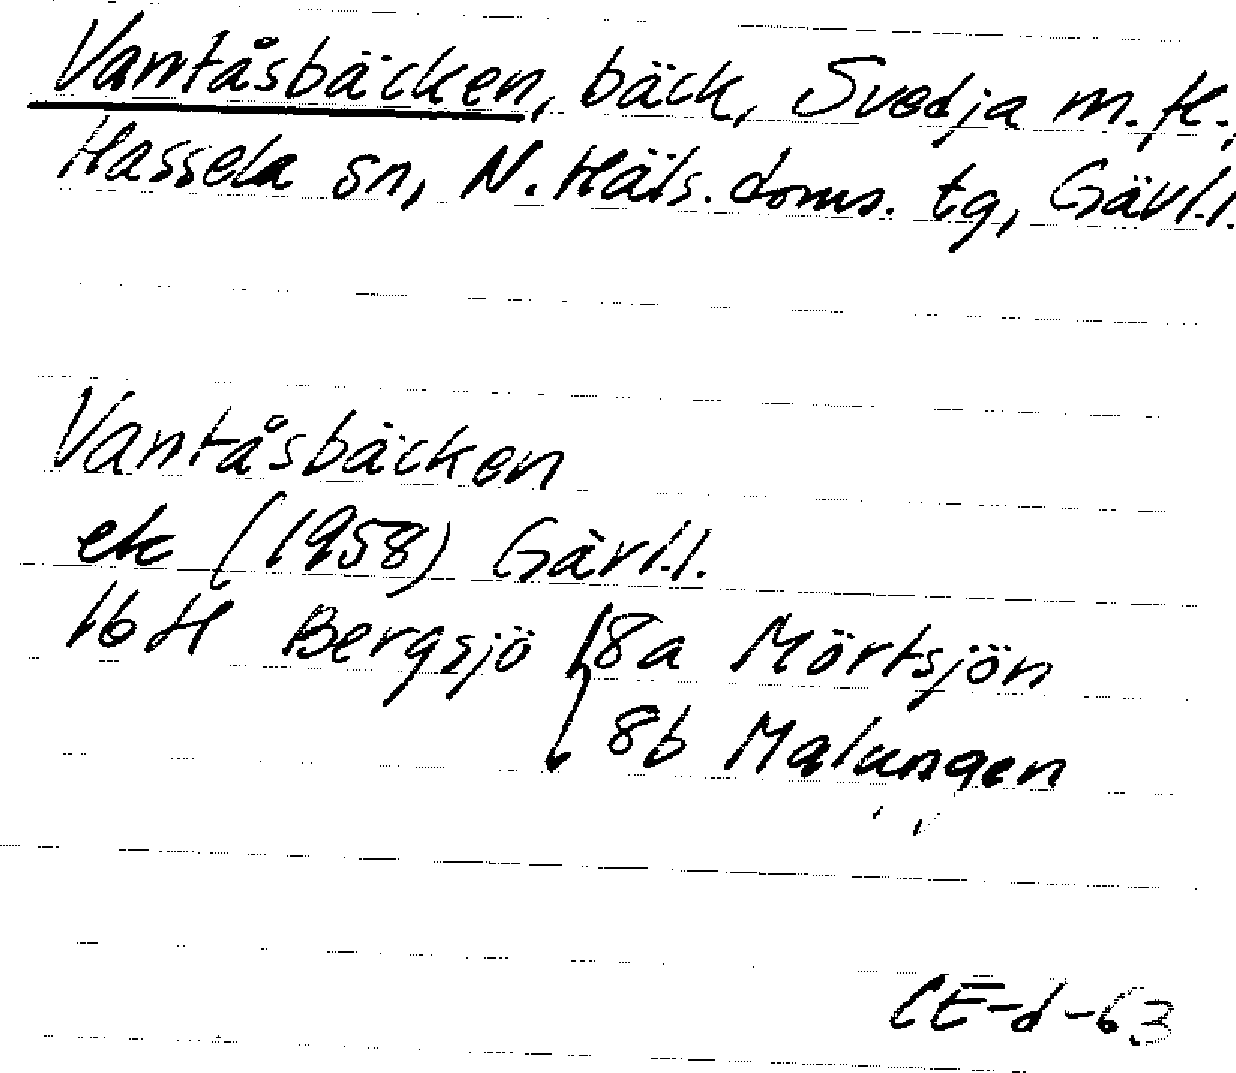 Vantåsbäcken, bäck, Svedja m. fl.,
Hassela sn, N. Häls. doms. tg, Gävl.l.
Vantåsbäcken
ek (1958) Gävl.l.
16H Bergsjö { 8a Mörtsjön
8b Malungen
CE-d-63